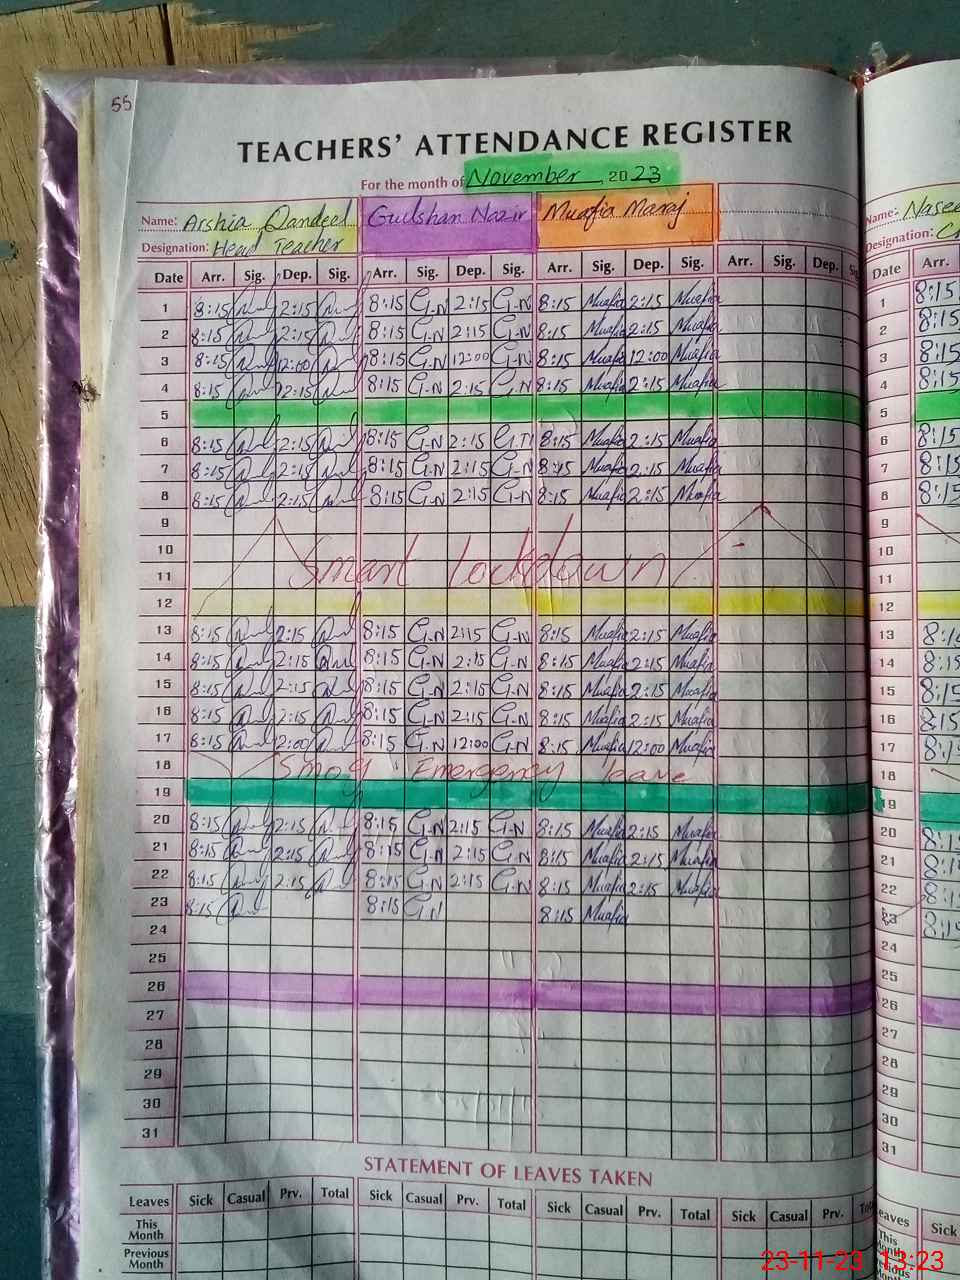 55
TEACHERS' ATTENDANCE REGISTER
For the month of November 2023
Name: Arshia Qandeel Gulshan Nazir Muafia Maraj
Designation: Head Teacher
Date Arr. Sig. Dep. Sig. Arr. Sig. Dep. Sig. Arr. Sig. Dep. Sig. Arr. Sig. Dep.
1 8:15 2:15 8:15 G.N 2:15 G.N 8:15 Muafia 2:15 Muafia
2 8:15 2:15 8:15 G.N 2:15 G.N 8:15 Muafia 2:15 Muafia
3 8:15 12:00 8:15 G.N 12:00 G.N 8:15 Muafia 12:00 Muafia
4 8:15 8:15 G.N 2:15 G.N 8:15 Muafia 2:15 Muafia
5
6 8:15 2:15 8:15 G.N 2:15 8:15 Muafia 2:15 Muafia
7 8:15 2:15 8:15 G.N 2:15 G.N 8:15 Muafia 2:15 Muafia
8 8:15 2:15 8:15 G.N 2:15 G.N 8:15 Muafia 2:15 Muafia
9
10 Smart lockdown
11
12
13 8:15 2:15 8:15 G.N 2:15 G.N 8:15 Muafia 2:15 Muafia
14 8:15 2:15 8:15 G.N 2:15 G.N 8:15 Muafia 2:15 Muafia
15 8:15 2:15 8:15 G.N 2:15 G.N 8:15 Muafia 2:15 Muafia
16 8:15 2:15 8:15 G.N 2:15 G.N 8:15 Muafia 2:15 Muafia
17 8:15 2:00 8:15 G.N 12:00 G.N 8:15 Muafia 12:00 Muafia
18 Smog Emergency leave
19
20 8:15 2:15 8:15 G.N 2:15 G.N 8:15 Muafia 2:15 Muafia
21 8:15 2:15 8:15 G.N 2:15 G.N 8:15 Muafia 2:15 Muafia
22 8:15 2:15 8:15 G.N 2:15 G.N 8:15 Muafia 2:15 Muafia
23 8:15 8:15 G.N 8:15 Muafia
24
25
26
27
28
29
30
31
STATEMENT OF LEAVES TAKEN
Leaves Sick Casual Prv. Total Sick Casual Prv. Total Sick Casual Prv. Total Sick Casual Prv.
This Month
Previous Month
Name: Nasee
Designation:
Date Arr.
1 8:15
2 8:15
3 8:15
4 8:15
5
6 8:15
7 8:15
8 8:15
9
10
11
12
13
14
15 8:15
16 8:15
17
18
19
20
21
22
23
24
25
26
27
28
29
30
31
Sick
This
23-11-23 13:23